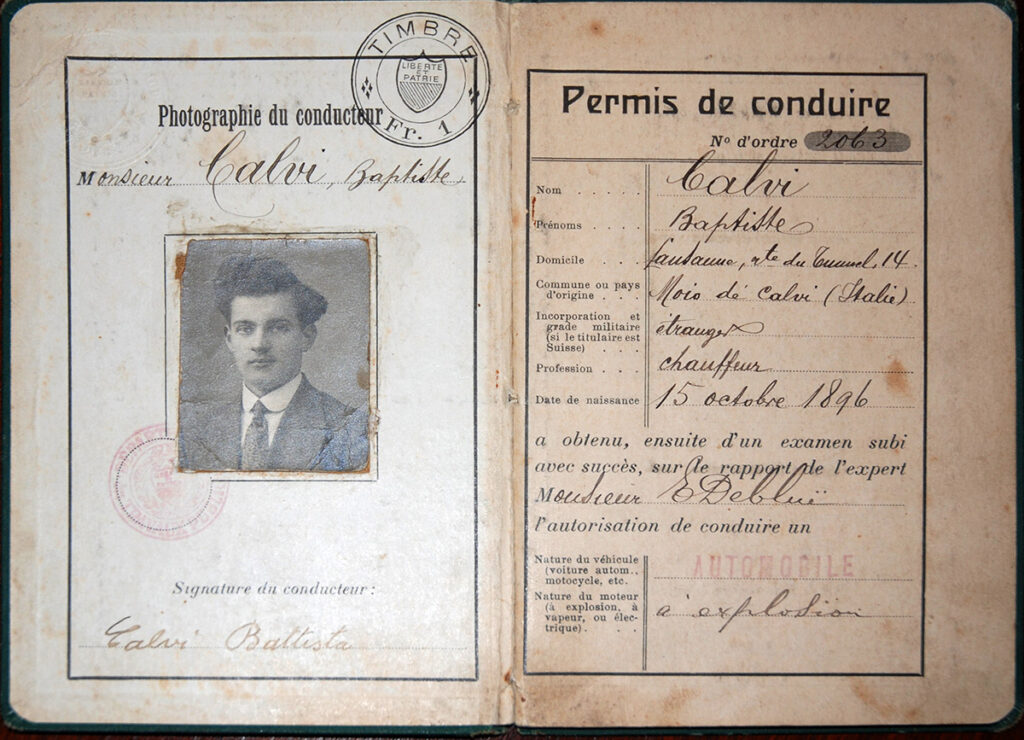 TIMBRE
LIBERTÉ
ET
PATRIE
Fr. 1
Photographie du conducteur
Monsieur Calvi, Baptiste
Signature du conducteur:
Calvi Battista
Permis de conduire
No d'ordre 2063
Nom . . . . . Calvi
Prénoms . . . . Baptiste
Domicile . . . Lausanne, rte du Tunnel, 14.
Commune ou pays
d'origine . . . Moio de Calvi (Italie)
Incorporation et
grade militaire étranger
(si le titulaire est
Suisse) . . .
Profession . . . chauffeur
Date de naissance 15 octobre 1896
a obtenu, ensuite d'un examen subi
avec succès, sur le rapport de l'expert
Monsieur E Debluë
l'autorisation de conduire un
Nature du véhicule
(voiture autom., AUTOMOBILE
motocycle, etc.
Nature du moteur
(à explosion, à à explosion
vapeur, ou élec-
trique). . .